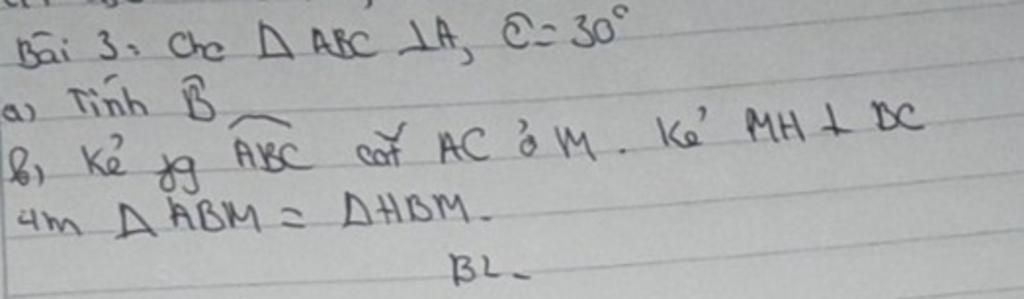 Bài 3: Cho Δ ABC ⊥A, Ĉ = 30°
a) Tính B̂
b) Kẻ pg ABC cắt AC ở M. Kẻ MH ⊥ BC
cm Δ ABM = ΔHBM.
BL